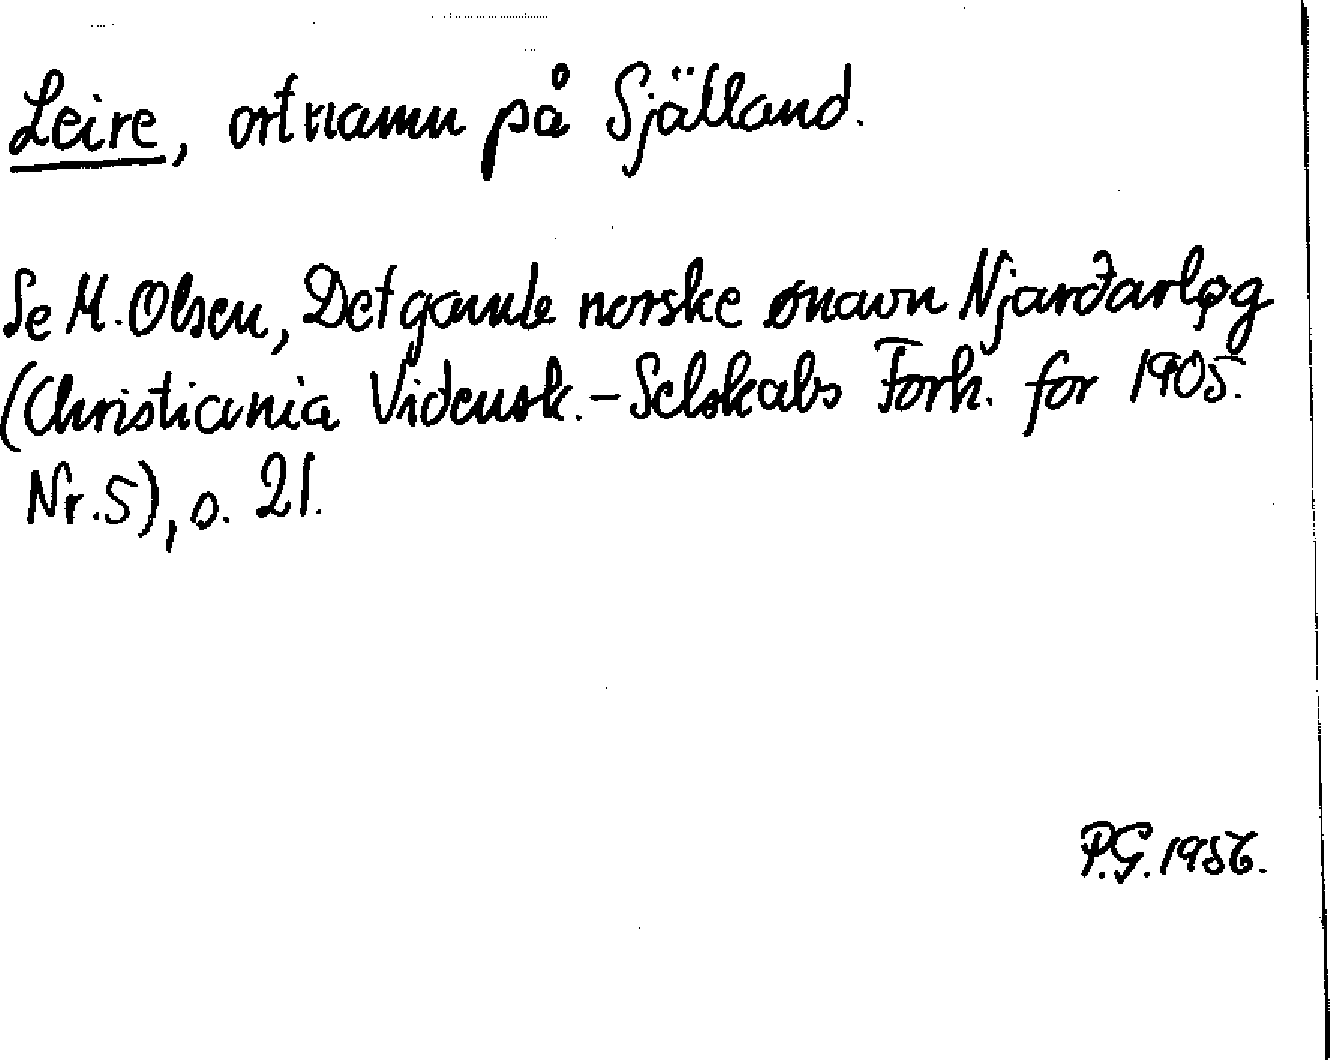 Leire, ortnamn på Själland.
Se M. Olsen, Det gamle norske ønavn Njarðarlǫg
(Christiania Vidensk.-Selskabs Forh. for 1905.
Nr. 5), s. 21.
P.G. 1956.